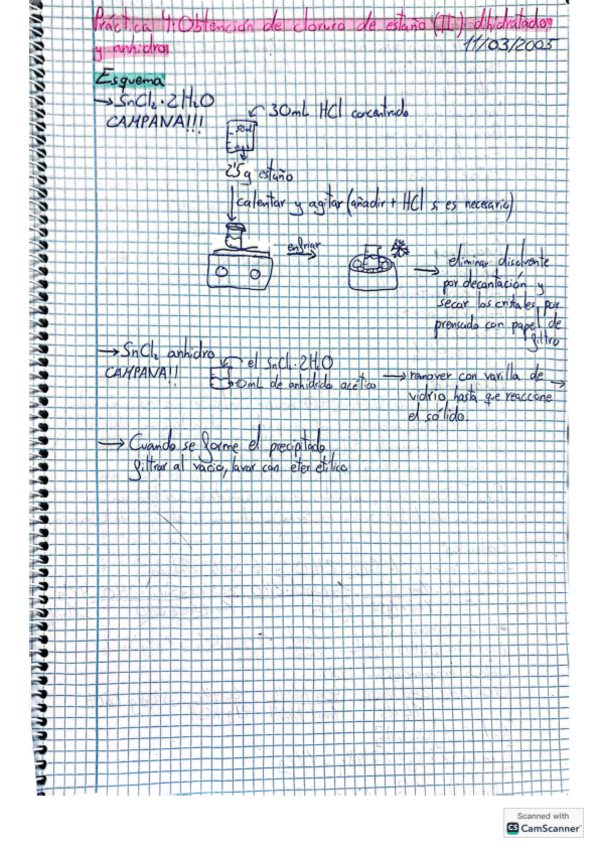 Práctica 4: Obtención de cloruro de estaño (II) dihidratado
y anhidro
11/03/2005
Esquema
→ SnCl₂·2H₂O
CAMPANA!!!
30mL HCl concentrado
50mL
2'5g estaño
calentar y agitar (añadir + HCl si es necesario)
enfriar
→ eliminar disolvente
por decantación y
secar los cristales por
prensado con papel de
filtro
→ SnCl₂ anhidro
CAMPANA!!
el SnCl₂·2H₂O
10mL de anhídrido acético
→ remover con varilla de →
vidrio hasta que reaccione
el sólido.
→ Cuando se forme el precipitado
filtrar al vacío, lavar con éter etílico
Scanned with
CS CamScanner